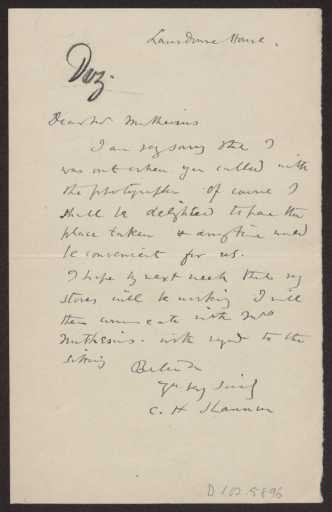 Lansdowne House.
Dear Mr Muthesius
I am very sorry that I
was out when you called with
the photographer of course I
shall be delighted to have the
place taken & any time would
be convenient for us.
I hope by next week that my
stoves will be working I will
then communicate with Mrs
Muthesius. with regard to the
sitting
Believe
Yrs very Sincly
C. H Shannon
D 102-5896